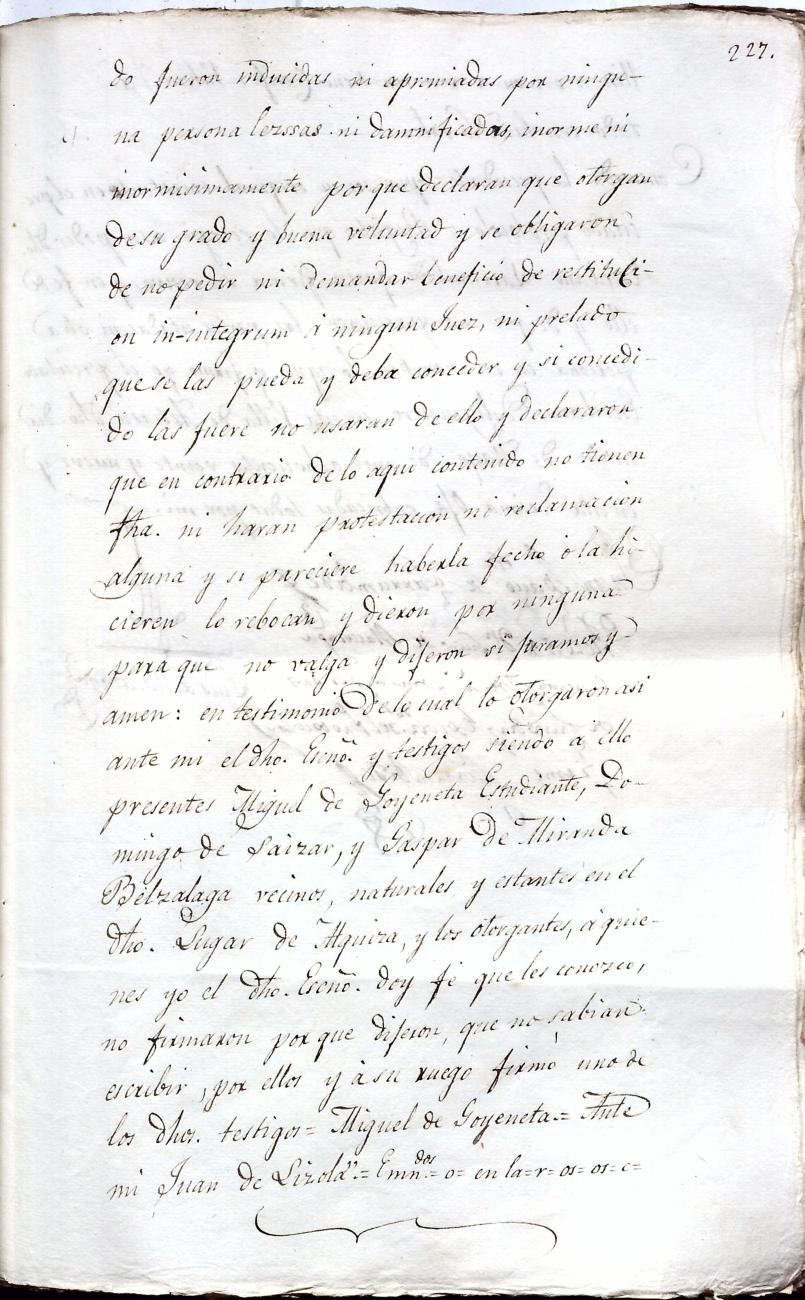 227.
do fueron inducidas ni apremiadas por ningu-
na persona lezssas ni damnificadas, inorme ni
inormisimamente porque declaran que otorgan
de su grado y buena voluntad y se obligaron
de no pedir ni demandar beneficio de restituci-
on in-integrum á ningun Juez, ni prelado
que se las pueda y deba conceder y si concedi-
do las fuere no usaran de ello y declararon
que en contrario de lo aqui contenido no tienen
fha. ni haran protestacion ni reclamacion
alguna y si pareciere haberla fecho o la hi-
cieren lo rebocan y dieron por ninguna
para que no valga y dijeron si juramos y
amen: en testimonio de lo cual lo otorgaron asi
ante mi el dho. Escño. y testigos siendo á ello
presentes Miguel de Goyeneta Estudiante, Do-
mingo de Saizar, y Gaspar de Miranda
Belzalaga vecinos, naturales y estantes en el
dho. Lugar de Alquiza, y los otorgantes, á quie-
nes yo el dho. Escño. doy fé que les conozco,
no firmaron porque dijeron, que no sabian
escribir, por ellos y á su ruego firmó uno de
los dhos. testigos= Miguel de Goyeneta.= Ante
mi Juan de Lizola.= Emn.dos= o= en la=r= os= os= e=